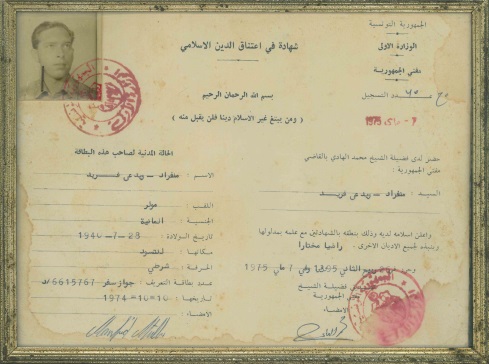 الجمهورية التونسية
الوزارة الاولى
مفتي الجمهورية
عدد التسجيل
شهادة في اعتناق الدين الاسلامي
بسم الله الرحمان الرحيم
( ومن يبتغ غير الاسلام دينا فلن يقبل منه )
حضر لدى فضيلة الشيخ محمد الهادي بالقاضي
مفتي الجمهورية :
السيد : منفراد
واعلن اسلامه لديه وذلك بنطقه بالشهادتين مع علمه بمدلولها
ونبذه لجميع الاديان الاخرى . راضيا مختارا
الثاني 1395 وفي 7 ماي 1975
فضيلة الشيخ
الجمهورية
الامضاء
الحالة المدنية لصاحب هذه البطاقة
الاسم : منفراد
اللقب : مولر
الجنسية : المانية
تاريخ الولادة : 23-7-1940
مكانها :
الحرفة : شرطي
عدد بطاقة التعريف : جواز سفر 6615767
تاريخها : 10-10-1974
الامضاء :